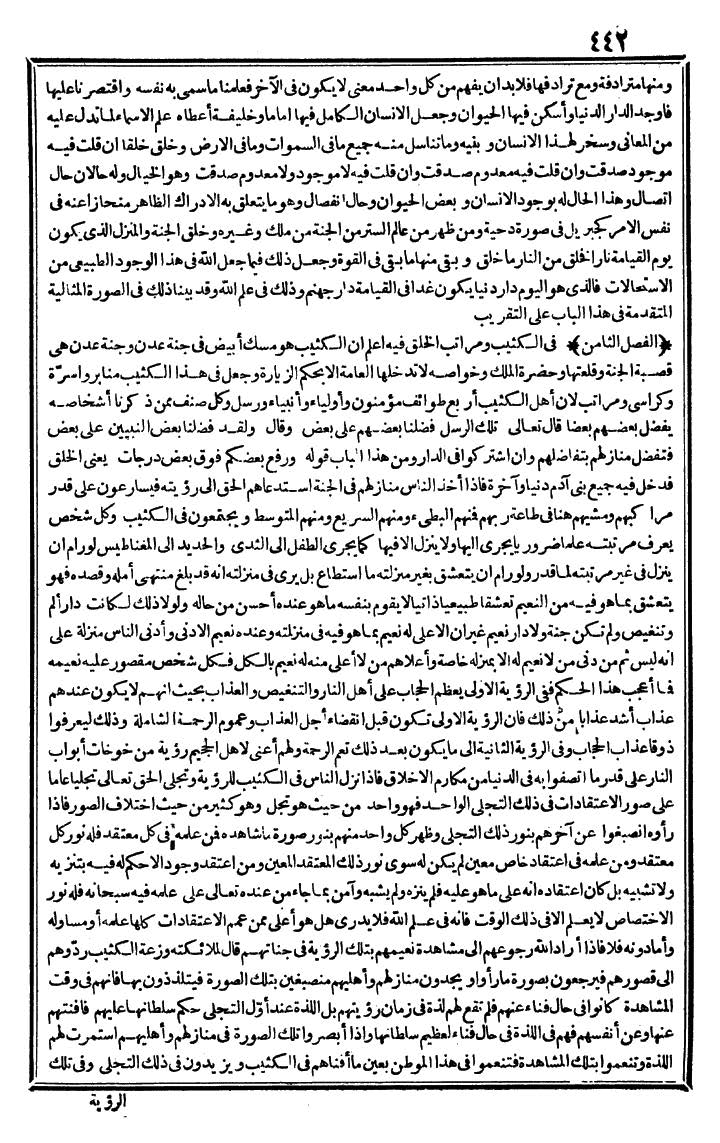 ٤٤٢
ومنها مترادفة ومع ترادفها فلابد ان يفهم من كل واحد معنى لا يكون فى الآخر فعلمنا ما سمى به نفسه واقتصرنا عليها
فاوجد الدار الدنيا وأسكن فيها الحيوان وجعل الانسان الكامل فيها اماما وخليفة أعطاه علم الاسماء لما تدل عليه
من المعانى وسخر لهذا الانسان وبنيه وما تناسل منه جميع ما فى السموات وما فى الارض وخلق خلقا ان قلت فيه
موجود صدقت وان قلت فيه معدوم صدقت وان قلت فيه لا موجود ولا معدوم صدقت وهو الخيال وله حالان حال
اتصال وهذا الحال له بوجود الانسان وبعض الحيوان وحال انفصال وهو ما يتعلق به الادراك الظاهر منحازا عنه فى
نفس الامر كجبريل فى صورة دحية ومن ظهر من عالم الستر من الجنة من ملك وغيره وخلق الجنة والمنزل الذى يكون
يوم القيامة نارا فخلق من النار ما خلق وبقى منها ما بقى فى القوة وجعل ذلك فيما جعل الله فى هذا الوجود الطبيعى من
الاستحالات فالذى هو اليوم دار دنيا يكون غدا فى القيامة دار جهنم وذلك فى علم الله وقد بينا ذلك فى الصورة المثالية
المتقدمة فى هذا الباب على التقريب
﴿الفصل الثامن﴾ فى الكثيب ومراتب الخلق فيه اعلم ان الكثيب هو مسك أبيض فى جنة عدن وجنة عدن هى
قصبة الجنة وقلعتها وحضرة الملك وخواصه لا تدخلها العامة الا بحكم الزيارة وجعل فى هذا الكثيب منابر واسرة
وكراسى ومراتب لان أهل الكثيب أربع طوائف مؤمنون وأولياء وأنبياء ورسل وكل صنف ممن ذكرنا أشخاصه
يفضل بعضهم بعضا قال تعالى تلك الرسل فضلنا بعضهم على بعض وقال ولقد فضلنا بعض النبيين على بعض
فتتفضل منازلهم بتفاضلهم وان اشتركوا فى الدار ومن هذا الباب قوله ورفع بعضكم فوق بعض درجات يعنى الخلق
فدخل فيه جميع بنى آدم دنيا وآخرة فاذا أخذ الناس منازلهم فى الجنة استدعاهم الحق الى رؤيته فيسارعون على قدر
مراكبهم ومشيهم هنا فى طاعة ربهم فمنهم البطىء ومنهم السريع ومنهم المتوسط ويجتمعون فى الكثيب وكل شخص
يعرف مرتبته علما ضروريا يجرى اليها ولا ينزل الا فيها كما يجرى الطفل الى الثدى والحديد الى المغناطيس لو رام ان
ينزل فى غير مرتبته لما قدر ولو رام ان يتعشق بغير منزلته ما استطاع بل يرى فى منزلته انه قد بلغ منتهى أمله وقصده فهو
يتعشق بما هو فيه من النعيم تعشقا طبيعيا ذاتيا لا يقوم بنفسه ما هو عنده أحسن من حاله ولولا ذلك لكانت دار ألم
وتنغيص ولم تكن جنة ولا دار نعيم غير ان الاعلى له نعيم بما هو فيه فى منزلته وعنده نعيم الادنى وأدنى الناس منزلة على
انه ليس ثم من دنى من لا نعيم له الا بمنزله خاصة وأعلاهم من لا أعلى منه له نعيم بالكل فكل شخص مقصور عليه نعيمه
فما أعجب هذا الحكم ففى الرؤية الاولى يعظم الحجاب على أهل النار والتنغيص والعذاب بحيث انهم لا يكون عندهم
عذاب أشد عذابا من ذلك فان الرؤية الاولى تكون قبل انقضاء أجل العذاب وعموم الرحمة الشاملة وذلك ليعرفوا
ذوقا عذاب الحجاب وفى الرؤية الثانية الى ما يكون بعد ذلك تعم الرحمة ولهم أعنى لاهل الجحيم رؤية من خوخات أبواب
النار على قدر ما اتصفوا به فى الدنيا من مكارم الاخلاق فاذا نزل الناس فى الكثيب للرؤية وتجلى الحق تعالى تجليا عاما
على صور الاعتقادات فى ذلك التجلى الواحد فهو واحد من حيث هو تجل وهو كثير من حيث اختلاف الصور فاذا
رأوه انصبغوا عن آخرهم بنور ذلك التجلى وظهر كل واحد منهم بنور صورة ما شاهده فمن علمه فى كل معتقد فله نور كل
معتقد ومن علمه فى اعتقاد خاص معين لم يكن له سوى نور ذلك المعتقد المعين ومن اعتقد وجود الا حكم له فيه بتنزيه
ولا تشبيه بل كان اعتقاده انه على ما هو عليه فلم ينزه ولم يشبه وآمن بما جاء من عنده تعالى على علمه فيه سبحانه فله نور
الاختصاص لا يعلم الا فى ذلك الوقت فانه فى علم الله فلا يدرى هل هو أعلى ممن عمم الاعتقادات كلها علمه أو مساو له
وأما دونه فلا فاذا أراد الله رجوعهم الى مشاهدة نعيمهم بتلك الرؤية فى جناتهم قال لملائكته وزعة الكثيب ردوهم
الى قصورهم فيرجعون بصورة ما رأوا ويجدون منازلهم وأهليهم منصبغين بتلك الصورة فيتلذذون بها فانهم فى وقت
المشاهدة كانوا فى حال فناء عنهم فلم تقع لهم لذة فى زمان رؤيتهم بل اللذة عند أول التجلى حكم سلطانها عليهم فافنتهم
عنها وعن أنفسهم فهم فى اللذة فى حال فناء لعظيم سلطانها واذا أبصروا تلك الصورة فى منازلهم وأهليهم استمرت لهم
اللذة وتنعموا بتلك المشاهدة فتنعموا فى هذا الموطن بعين ما أفناهم فى الكثيب ويزيدون فى ذلك التجلى وفى تلك
الرؤية